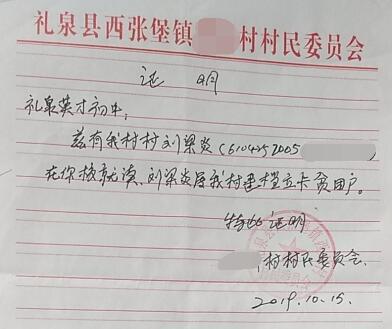 礼泉县西张堡镇 村村民委员会
证明
礼泉英才初中:
兹有我村村刘梁炎(6104252005
在你校就读、刘梁炎属我村建档立卡贫困户。
特此证明
村村民委员会.
2019.10.15.